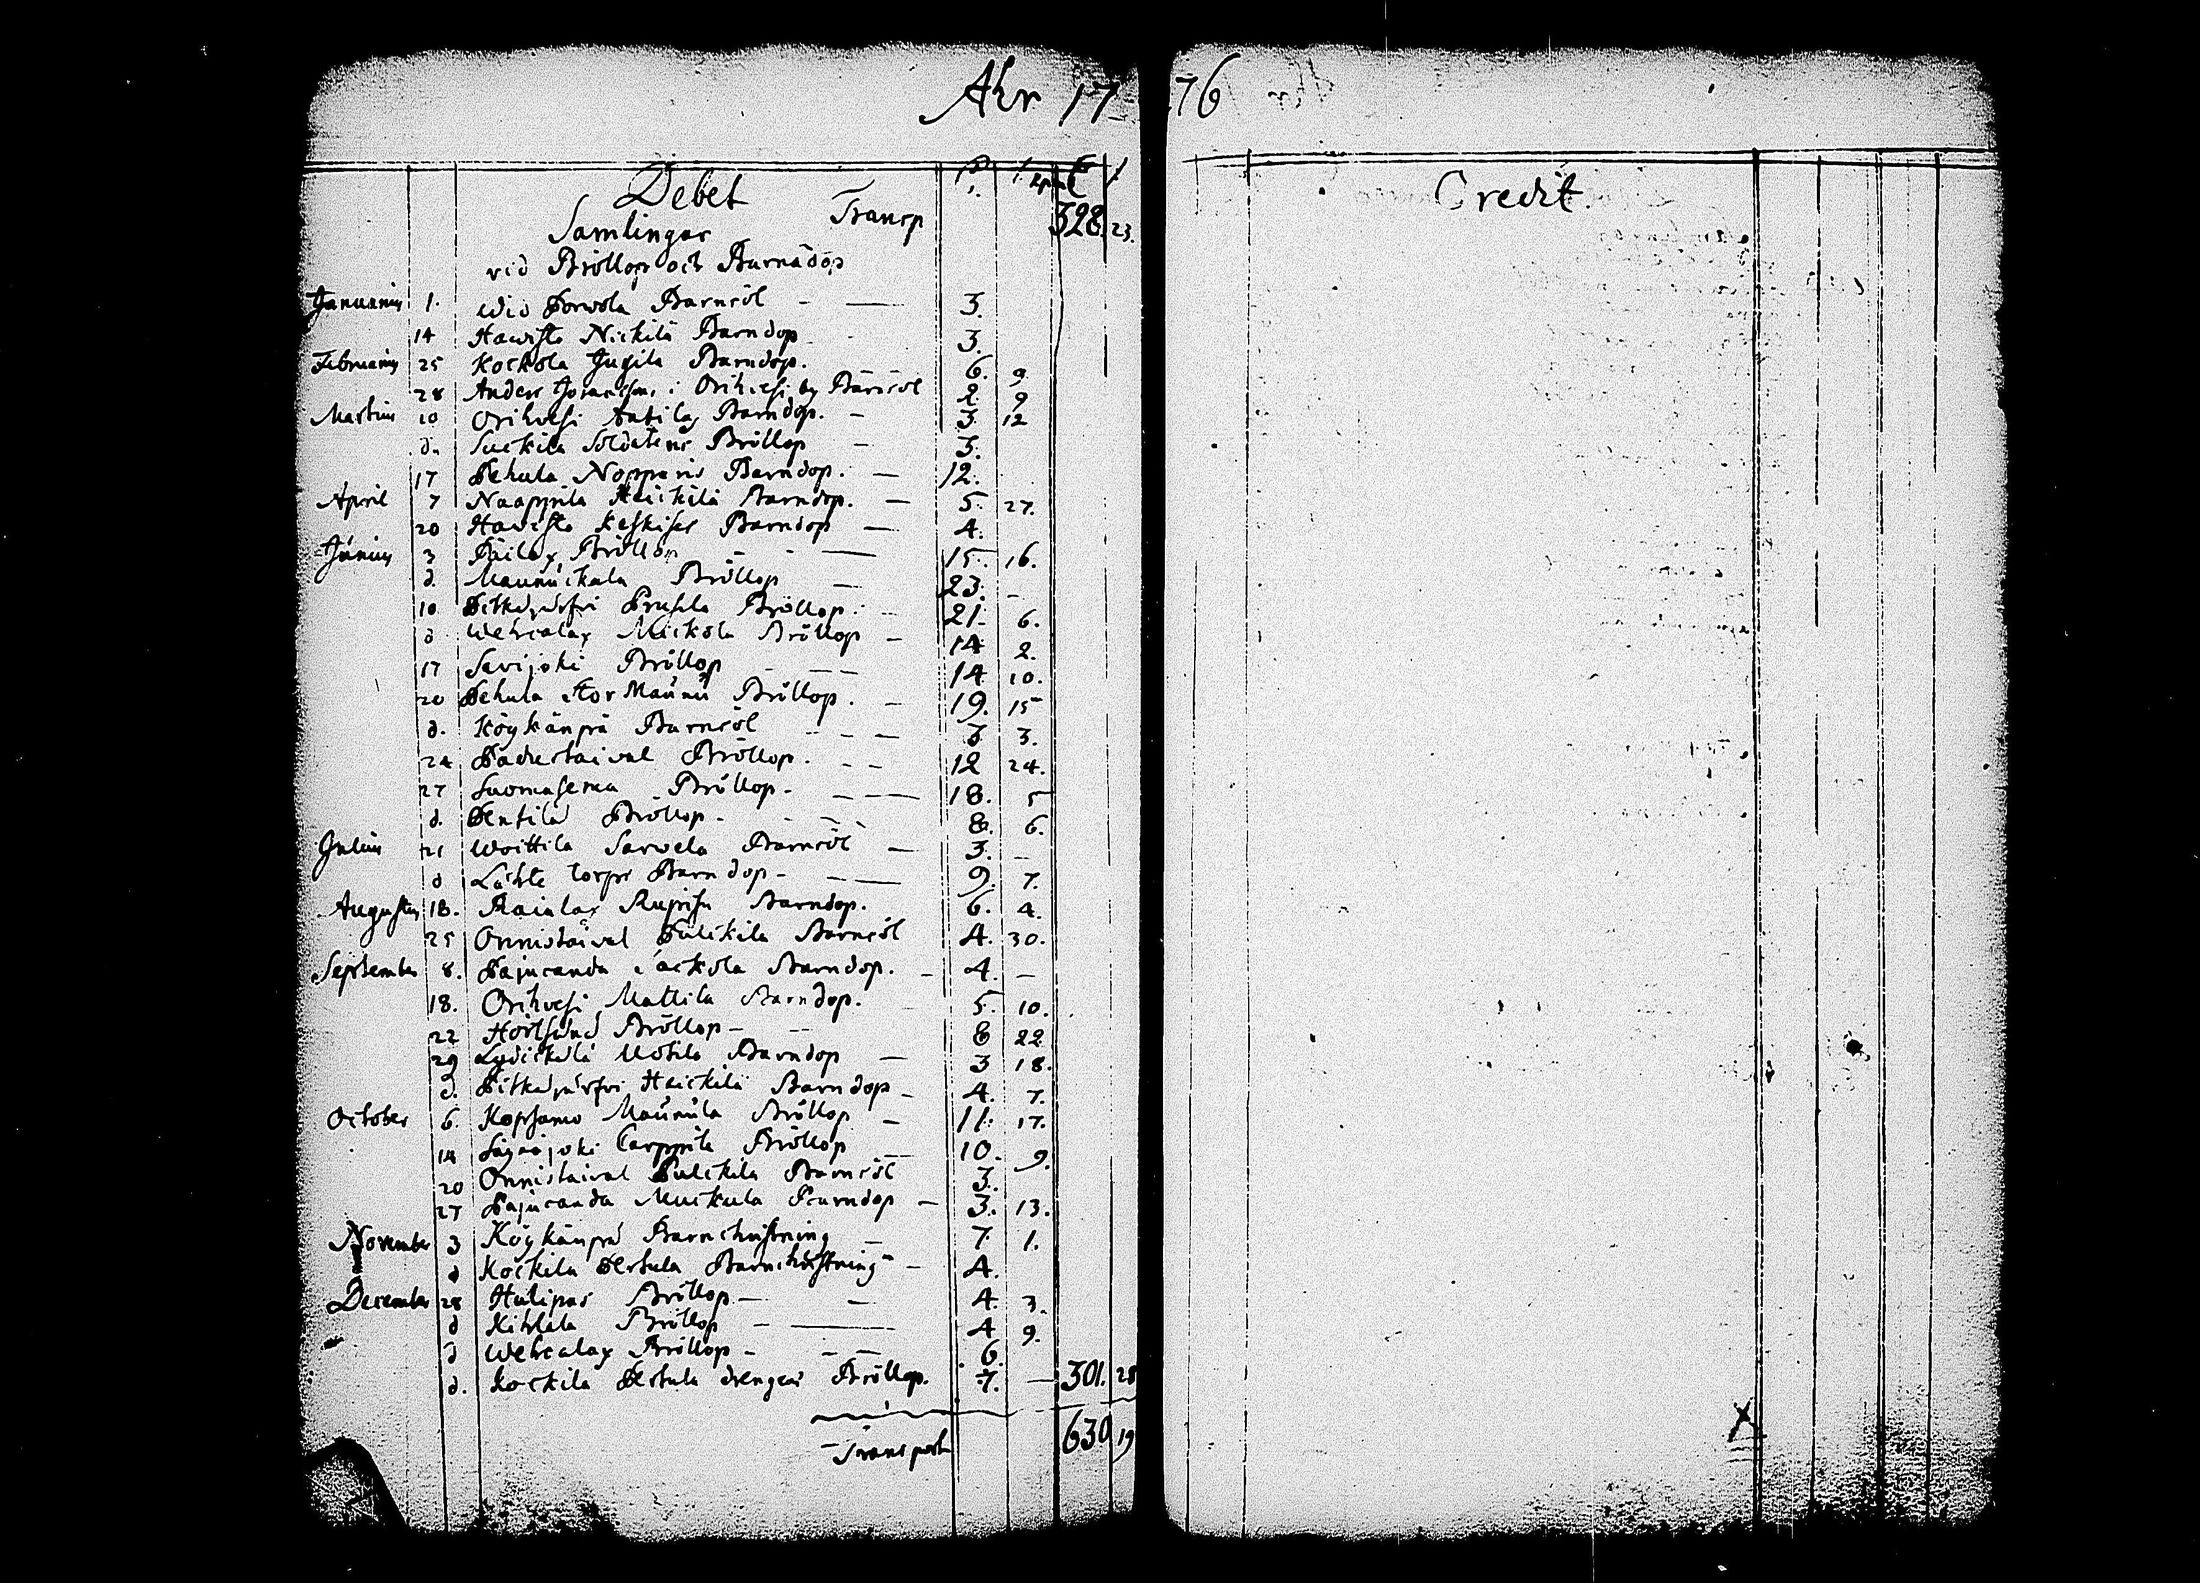 Åhr 1776
Debet Transp 328. 23.
Samlingar
vid Bröllop och Barnadop
Januarius 1. Wid Porvola Barnsöl - — 3.
14 Hawisto Nickilä Barndop 3.
Februarius 25 Kockola Jugila Barndop. 6. 9
28 Anders i Orihvesi by Barnsöl 2 9
Martius 10 Orihvesi Antilas Barndop. - 3. 12
d. Suckila Soldatens Bröllop - 3.
17 Pehula Nopparis Barndop. — 12.
April 7 Naappila Heickilä Barndop. — 5. 27.
20 Havisto Keskises Barndop — 4.
Junius 3 Päilax Bröllop - - — 15. 16.
d. Maunuckala Bröllop — 23. -
10 Pitkäjärfvi Prusila Bröllop. - 21. 6.
d Wehcalax Mickola Bröllop - 14 2.
17 Savijoki Bröllop 14 10.
20 Pehula Stor Maunu Bröllop. - 19. 15
d. Köykänpä Barnsöl 3 3.
24 Padustaival Bröllop. - - 12 24.
27 Suomasema Bröllop. - — 18. 5
d. Pentilä Bröllop. - 8. 6.
Julius 21 Woittila Sarvela Barnsöl — 3. —
d Torps Barndop - — 9. 7.
Augustus 18. Rajalax Rupisu Barndop. 6. 4.
25 Onnistaival Pulckila Barnsöl 4. 30.
September 8. Pajucanda Jackola Barndop. - 4. —
18. Orihvesi Mattila Barndop. 5. 10.
22 Bröllop - - 8 22
29 Lydickälä Uotila Barndop — 3 18.
d. Pitkäjärfvi Heickilä Barndop - 4. 7.
October 6. Kopsamo Maunula Bröllop - 11. 17.
14 Carppila Bröllop 10. 9.
20 Onnistaival Pulckila Barnsöl 3.
27 Pajucanda Muckula Barndop — 3. 13.
November 3 Köykänpä Barnchristning — 7. 1.
d Kockila Pertula Barnchristning - 4.
December 28 Hulipas Bröllop — — 4. 3.
d Kihlala Bröllop - — 4 9.
d Wehcalax Bröllop - - — 6.
d. Kockila Pertula drengens Bröllop. 7. — 301. 28
Transport 630 19
Credit.